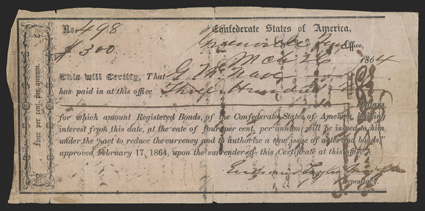 No. 498
Confederate States of America,
$300
Office,
Mch 26 1864
This will Certify, That
has paid in at this office Three Hundred
Dollars
for which amount Registered Bonds, of the Confederate States of America, bearing
interest from this date, at the rate of four per cent. per annum, will be issued to him
under the "act to reduce the currency and to authorize a new issue of notes and bonds
approved, February 17, 1864, upon the surrender of this Certificate at this office
Depositary
Four per cent. per annum.